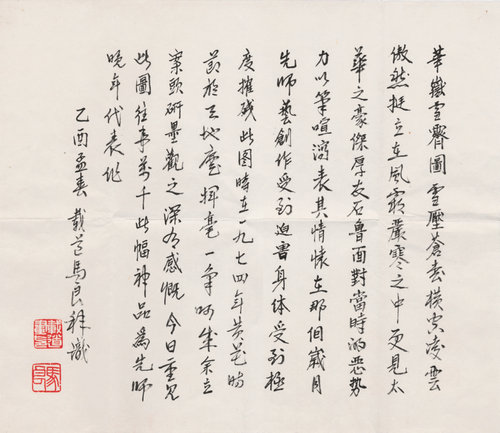 華嶽雪霽圖雪壓蒼松橫空凌雲
傲然挺立在風霜嚴寒之中更見太
華之豪傑厚友石魯面對當時的惡勢
力以筆喧瀉表其情懷在那個歲月
先師藝創作受到迫害身体受到極
度摧殘此图時在一九七四年黄花時
節於天地廬揮毫一氣呵成余立
案頭研墨觀之深为感慨今日重見
此圖往事萬千此幅神品為先師
晚年代表作
乙酉孟春馬良識